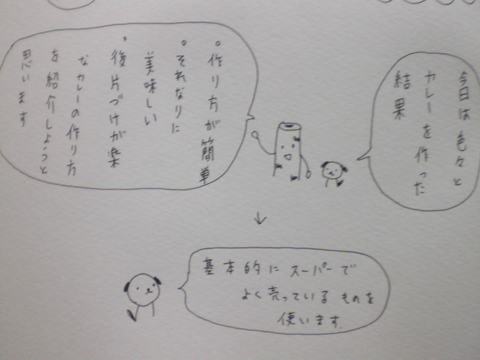 今日は色々と
カレーを作った
結果
。作り方が簡単
。それなりに
美味しい
。後片づけが楽
なカレーの作り方
を紹介しようと
思います
基本的にスーパーで
よく売っているものを
使います。